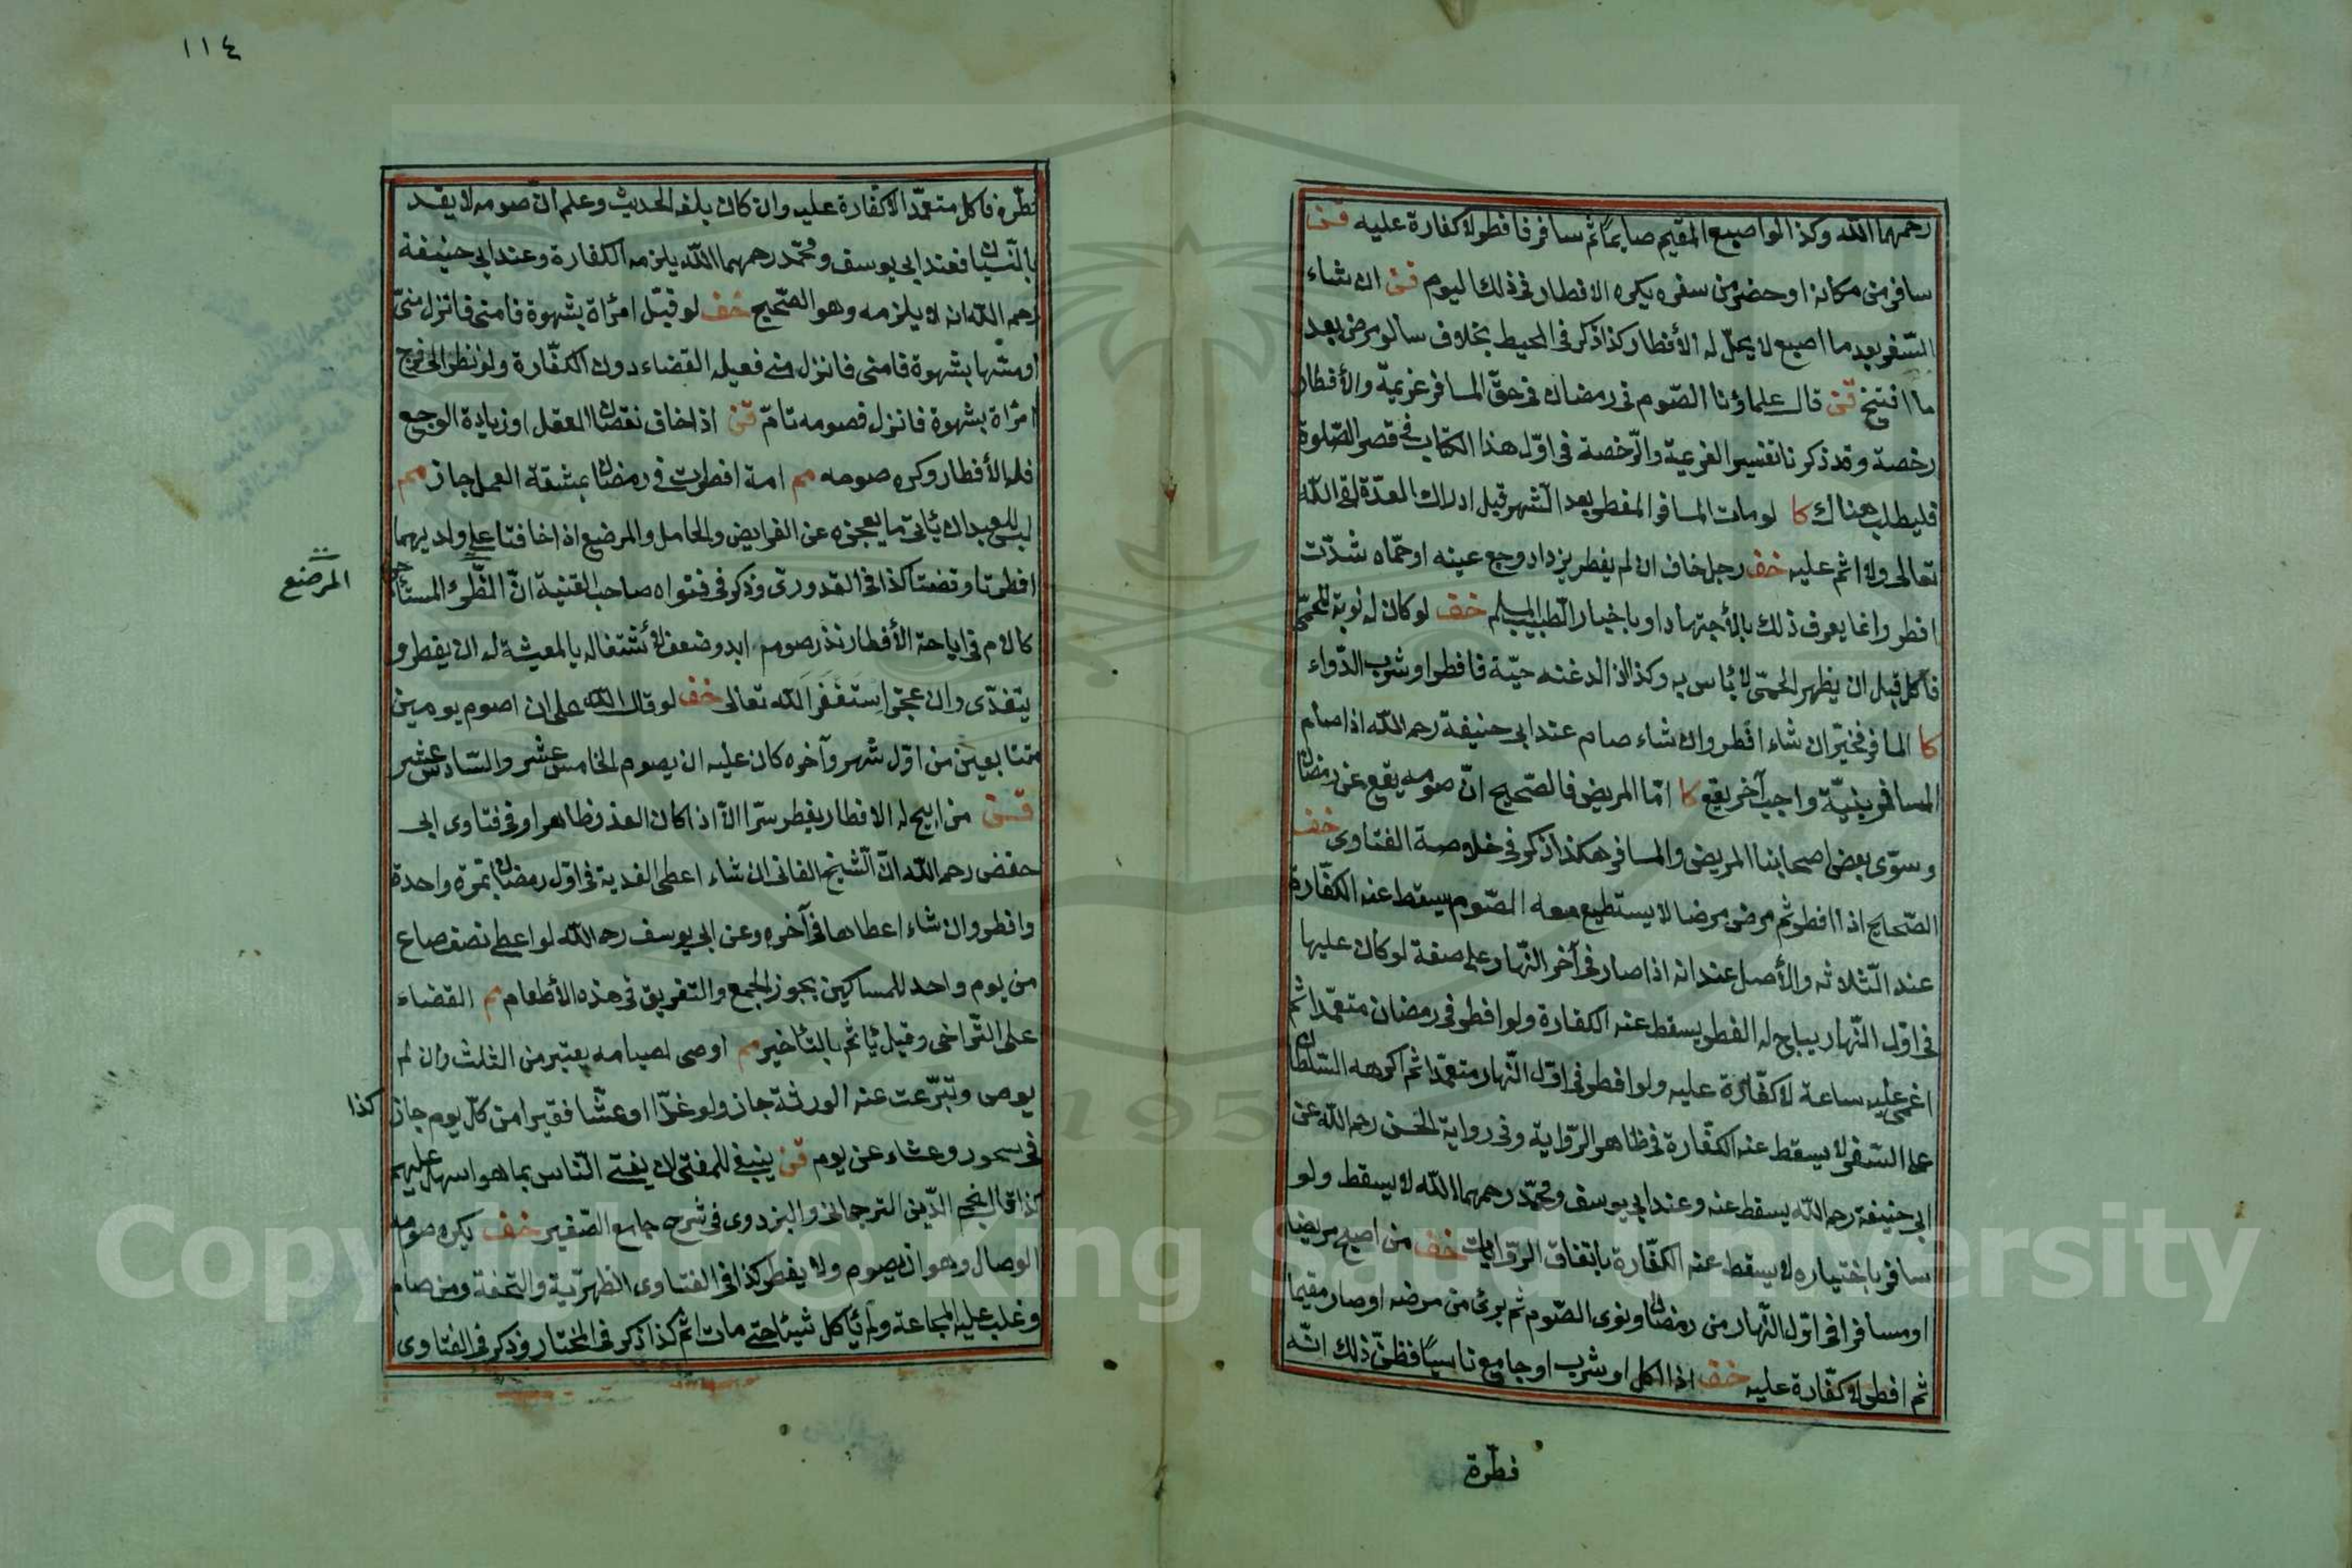 ١١٤
رحمهما الله وكذا لو اصبح المقيم صايماً ثم سافر فافطر لا كفارة عليه قن
سافر من مكانه او حضر من سفره يكره الافطار فى ذلك اليوم قن ان شاء
السّفر بعد ما اصبح لا يحلّ له الأفطار كذا ذكر فى المحيط بخلاف سالو مرض بعد
ما افتتح قن قال علماؤنا الصّوم فى رمضان فى حقّ المسافر عزيمة والأفطار
رخصة وقد ذكرنا تفسير العزيمة والرّخصة فى اوّل هذا الكتاب فى قصر الصّلوة
فليطلب هناك كا لو مات المسافر المفطر بعد الشهر قبل ادراك العدّة لقى الله
تعالى ولا اثم عليه خف رجل خاف ان لم يفطر يزداد وجع عينه او حمّاه شدّت
افطر وانما يعرف ذلك بالأجتهاد او باخبار الطبيب المسلم خف لو كان له نوبة للحمّى
فأكل قبل ان يظهر الحمّى لا بأس به وكذا اذا لدغته حيّة فافطر او شرب الدّواء
كا المسافر مخيّر ان شاء افطر وان شاء صام عند ابى حنيفة رحمه الله اذا صام
المسافر بنيّة واجب آخر يقع كا امّا المريض فالصّحيح انّ صومه يقع عن رمضان
وسوّى بعض اصحابنا المريض والمسافر هكذا ذكر فى خلاصة الفتاوى خف
الصّحايح اذا افطر ثم مرض مرضا لا يستطيع معه الصّوم يسقط عنه الكفّارة
عند الثّلاثه والأصل عندنا انه اذا صار فى آخر النّهار على صفة لو كان عليها
فى اوّل النّهار يباح له الفطر يسقط عنه الكفارة ولو افطر فى رمضان متعمّدا ثم
اغمى عليه ساعة لا كفّارة عليه ولو افطر فى اوّل النّهار متعمّدا ثم اكرهه السّلطان
على السّفر لا يسقط عنه الكفّارة فى ظاهر الرّواية وفى رواية الحسن رحمه الله عن
ابى حنيفة رحمه الله يسقط عنه وعند ابى يوسف ومحمّد رحمهما الله لا يسقط ولو
سافر باختياره لا يسقط عنه الكفّارة باتفاق الرّوايات خف من اصبح مريضا
او مسافرا فى اوّل النّهار من رمضان ونوى الصّوم ثم برئ من مرضه او صار مقيما
ثم افطر لا كفّارة عليه خف اذا اكل او شرب او جامع ناسيًا فظنّ ذلك انّه
فطّرة
فطّره فاكل متعمّدا لا كفّارة عليه وان كان بلغه الحديث وعلم انّ صومه لا يفسد
بالنّسيان فعند ابى يوسف ومحمّد رحمهما الله يلزمه الكفارة وعند ابى حنيفة
رحمه الله انه لا يلزمه وهو الصّحيح خف لو قبّل امرأة بشهوة فامنى فانزل منىّ
او مسّها بشهوة فامنى فانزل منى فعيله القضاء دون الكفّارة ولو نظر الى فرج
امرأة بشهوة فانزل فصومه تامّ قن اذا خاف نقصان العقل او زيادة الوجع
فله الأفطار وكره صومه مم امة افطرت فى رمضان بمشقة العمل جاز مم
ليس للعبد ان يأتى ما يعجزه عن الفرايض والحامل والمرضع اذا خافتا على ولديهما
المرضع
افطرتا وقضتا كذا فى القدورى وذكر فى فتواه صاحب القنية انّ الظّئر المستأجرة
كالام فى اباحة الأفطار نذر صوم ابد وضعف لأشتغاله بالمعيشة له ان يفطر و
يتغدّى وان عجز استغفر الله تعالى خف لو قال لله على ان اصوم يومين
متتابعين من اوّل شهر وآخره كان عليه ان يصوم الخامس عشر والسّادس عشر
قن من ابيح له الافطار يفطر سرّا الّا اذا كان العذر ظاهرا وفى فتاوى ابى
حفص رحمه الله انّ الشيخ الفانى ان شاء اعطى الفدية فى اوّل رمضان بمرّة واحدة
وافطر وان شاء اعطاها فى آخره وعن ابى يوسف رحمه الله لو اعطى نصف صاع
من يوم واحد للمساكين يجوز الجمع والتفريق فى هذه الأطعام مم القضاء
على التّراخى وقيل يأثم بالتّأخير مم اوصى لصيامه يعتبر من الثلث وان لم
يوص وتبرّعت عنه الورثة جاز ولو غدّا او عشّا فقيرا من كلّ يوم جاز
كذا
فى سحور وعشاء عن يوم قن ينبغى للمفتى ان يفتى النّاس بما هو اسهل عليهم
كذا قال نجم الدّين الترجمانى والبزدوى فى شرح جامع الصّغير خف يكره صوم
الوصال وهو ان يصوم ولا يفطر كذا فى الفتاوى الظهيريّة والتحفة ومن صام
وغلب عليه المجاعة ولم يأكل شيئا حتى مات اثم كذا ذكر فى المختار وذكر فى الفتاوى
Copyright © King Saud University